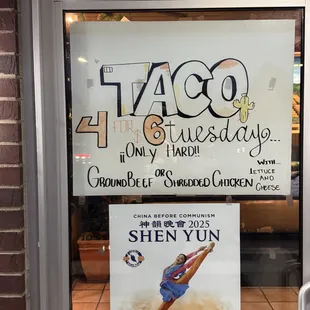 TACO
4 FOR 6 tuesday...
¡¡ONLY HARD!!
GROUND BEEF OR SHREDDED CHICKEN
WITH...
LETTUCE
AND
CHEESE
CHINA BEFORE COMMUNISM
神韻晚會 2025
SHEN YUN